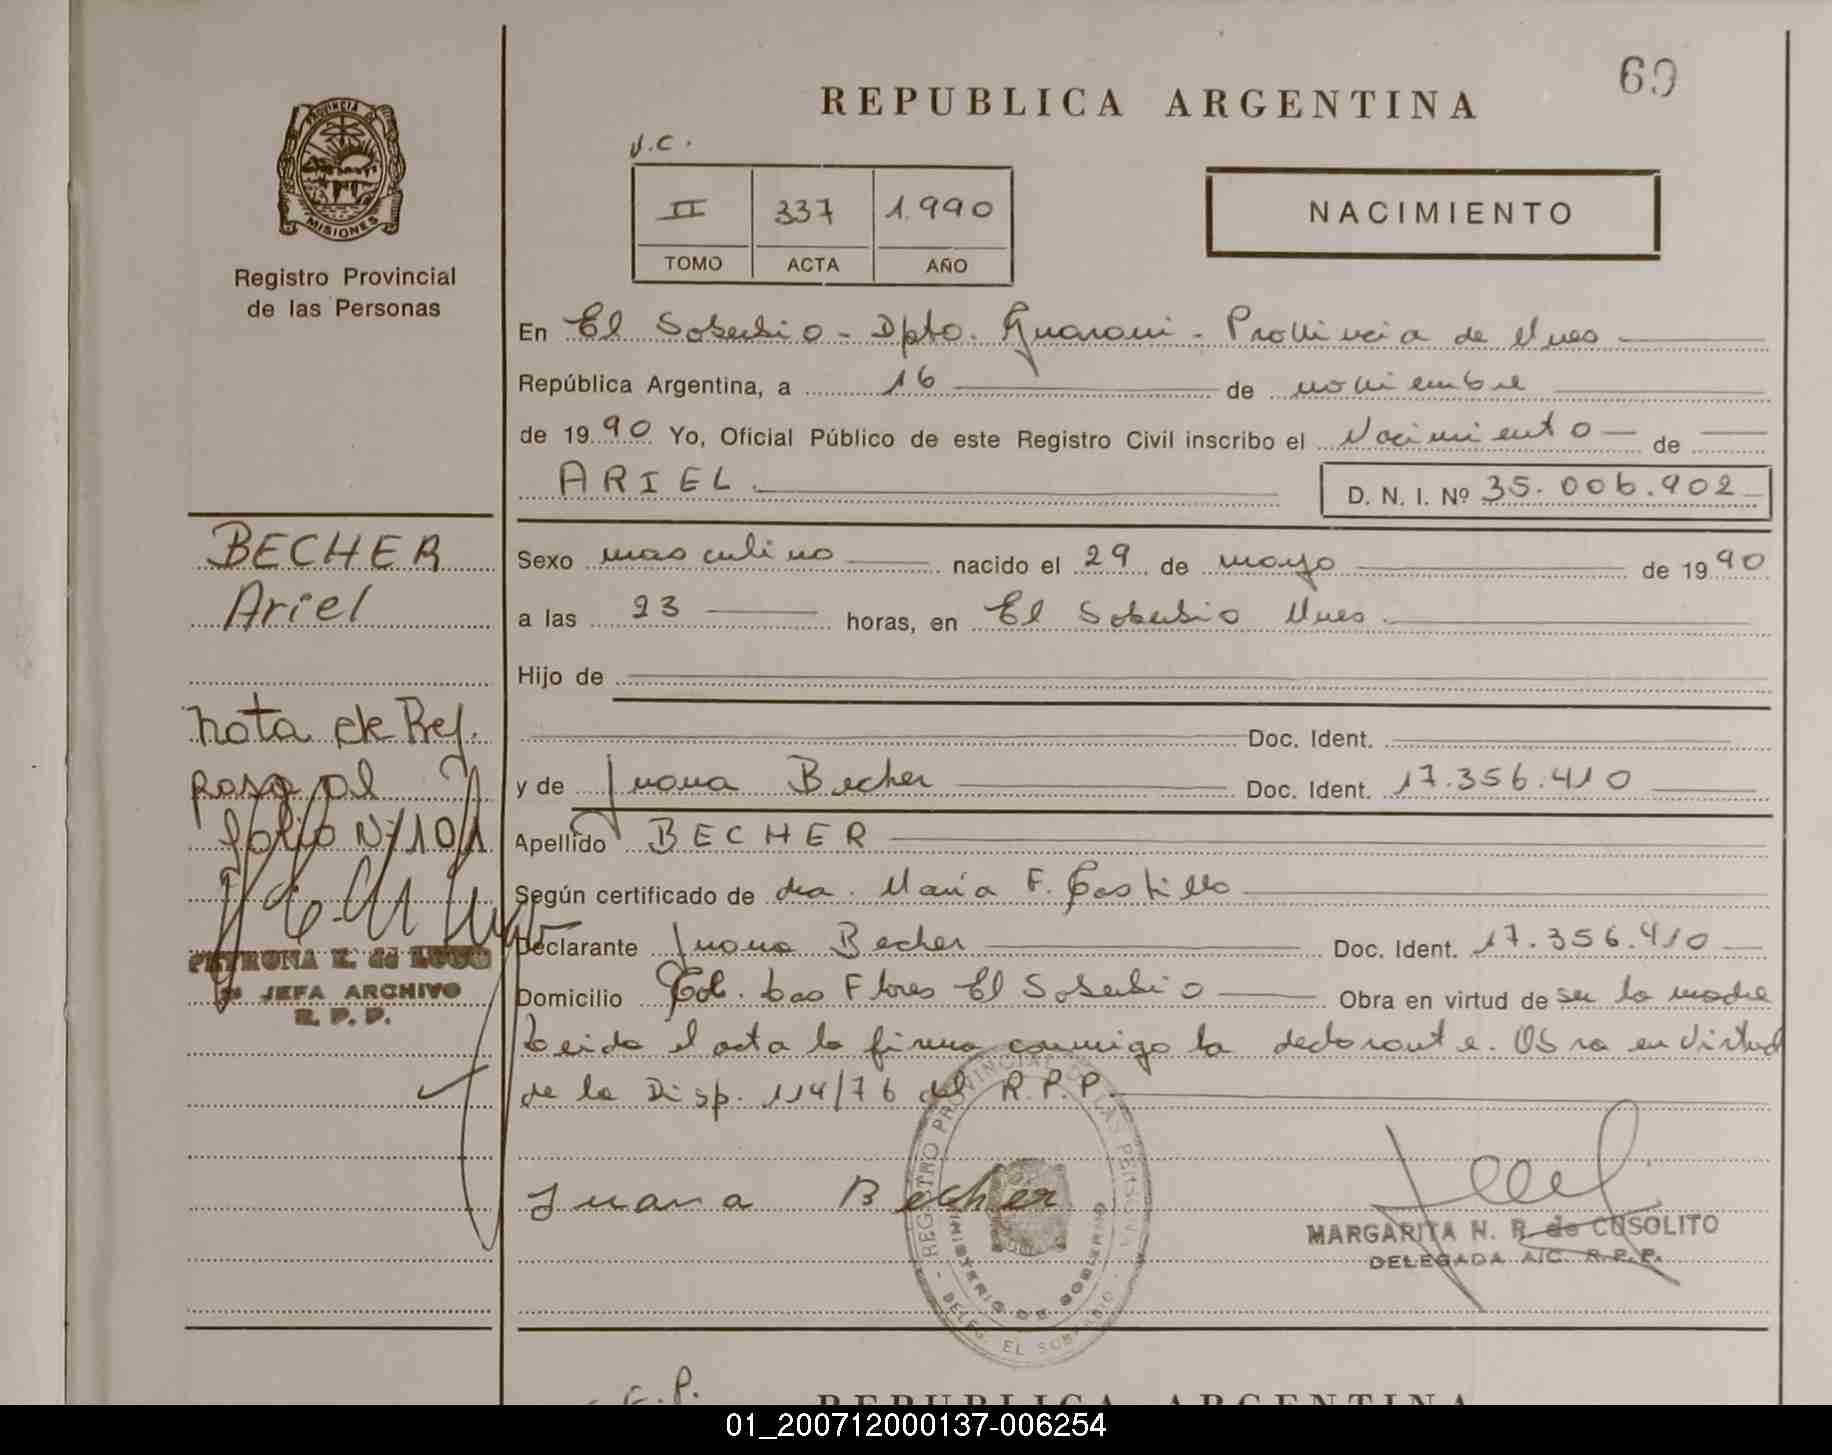 69
REPUBLICA ARGENTINA
J.C.
II 337 1.990
TOMO ACTA AÑO
NACIMIENTO
PROVINCIA DE
MISIONES
Registro Provincial
de las Personas
En El Soberbio - Dpto. Guarani - Provincia de Mnes
República Argentina, a 16 de noviembre
de 1990 Yo, Oficial Público de este Registro Civil inscribo el Nacimiento de
ARIEL
D. N. I. Nº 35.006.902
BECHER
Ariel
Sexo masculino nacido el 29 de mayo de 1990
a las 23 horas, en El Soberbio Mnes.
Hijo de
Doc. Ident.
y de Juana Becher Doc. Ident. 17.356.410
Apellido BECHER
Según certificado de dra. María F. Castillo
Declarante Juana Becher Doc. Ident. 17.356.410
Domicilio Col. Las Flores El Soberbio Obra en virtud de ser la madre
Leida el acta la firma conmigo la declarante. Obra en virtud
de la Disp. 114/76 del R.P.P.
nota de Ref.
pasa al
folio Nº 101
PETRONA E. de LUGO
JEFA ARCHIVO
R. P. P.
Juana Becher
REGISTRO PROVINCIAL DE LAS PERSONAS
MINISTERIO DE GOBIERNO
- DELEG. EL SOBERBIO -
MARGARITA N. R. de CUSOLITO
DELEGADA A/C. R.P.P.
F.P.
REPUBLICA ARGENTINA
01_200712000137-006254